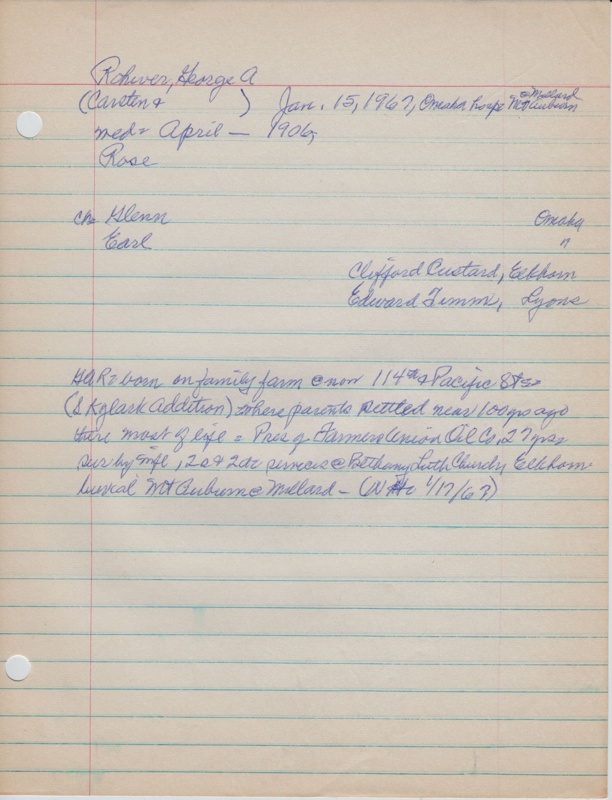 Rohwer, George A
(Carsten & ) Jan. 15, 1967, Omaha hosp @ Millard Mt Auburn
med = April — 1906,
Rose
ch = Glenn Omaha
Earl "
Clifford Custard, Elkhorn
Edward Timm, Lyons
GAR = born on family farm @ now 114th & Pacific Sts =
(Skylark Addition) = where parents settled near 100 yrs ago
there most of life = Pres of Farmers Union Oil Co, 27 yrs,
sur by wife, 2s & 2dr services @ Bethany Luth Church, Elkhorn
burial Mt Auburn @ Millard — 1/17/67)